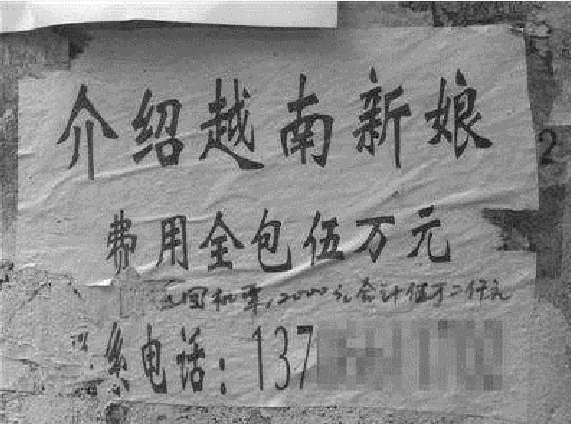 介绍越南新娘
2
费用全包伍万元
回机票,2000元合计伍万二仟元
系电话:137